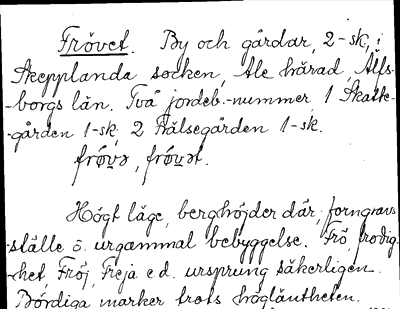 Frövet. By och gårdar, 2-sk, i
Skepplanda socken, Ale härad, Älfs-
-borgs län. Två jordeb.-nummer, 1 Skatte-
-gården 1-sk, 2 Frälsegården 1-sk.
frǿvə, frǿvət.
Högt läge, berghöjder där, forngravs-
-ställe o. urgammal bebyggelse. Frö, frodig-
-het, Fröj, Freja e d. ursprung säkerligen.
Bördiga marker trots högläntheten.